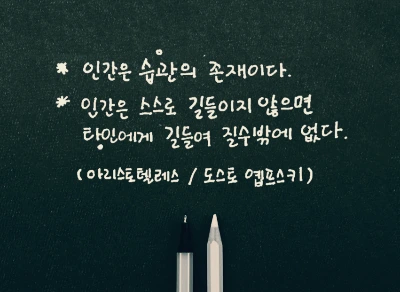 * 인간은 습관의 존재이다.
* 인간은 스스로 길들이지 않으면
타인에게 길들여 질수밖에 없다.
(아리스토텔레스 / 도스토옙프스키)